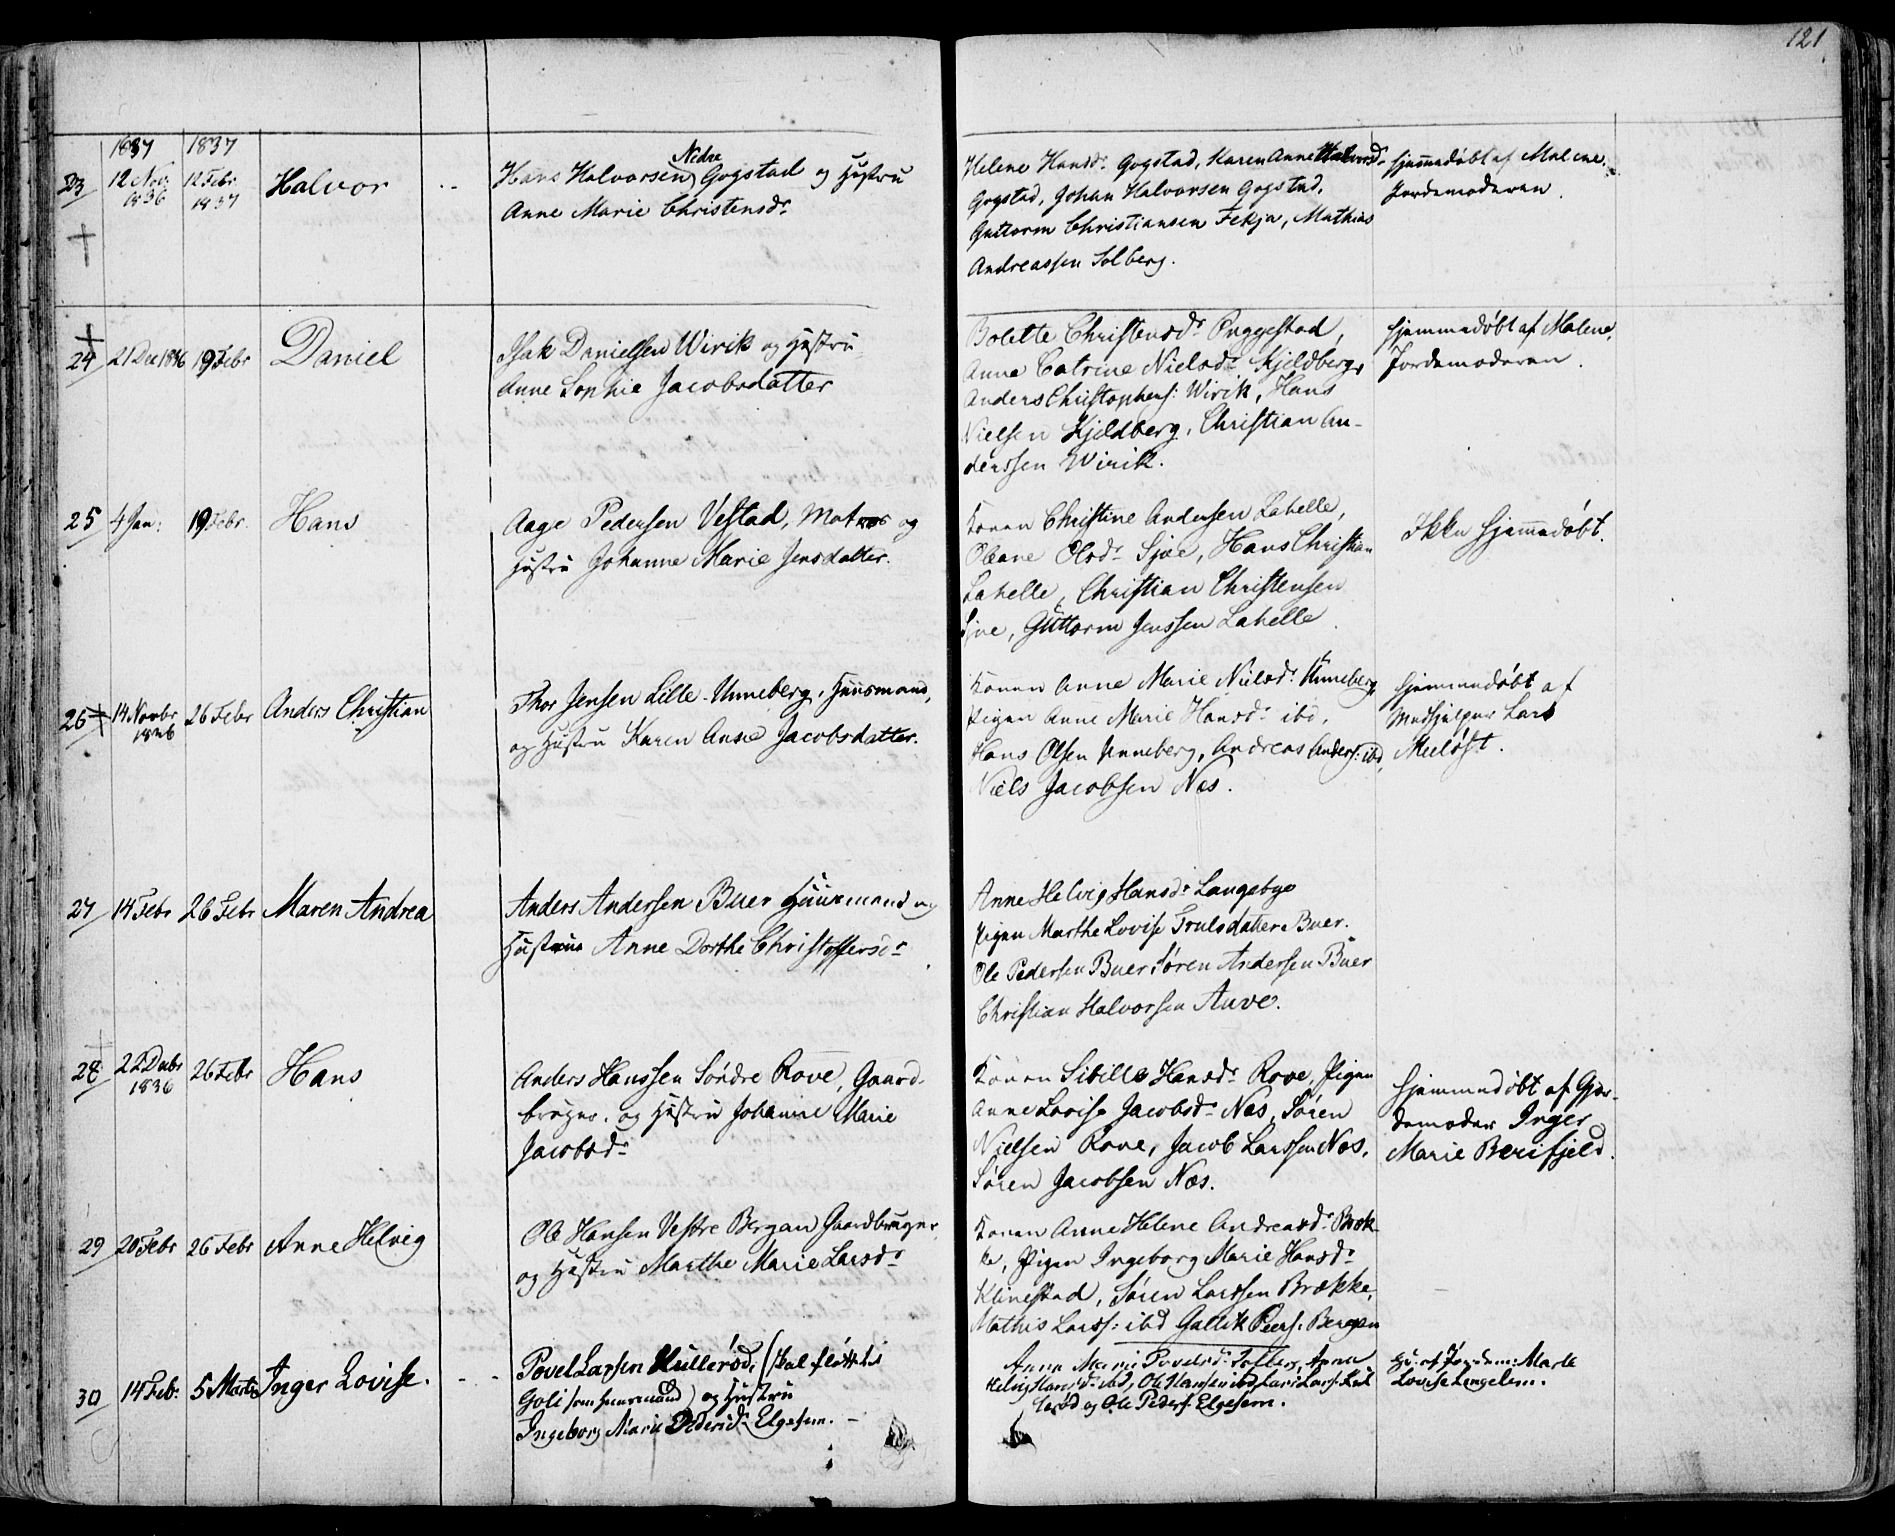 121
1837 1837
23 12 Nov: 1836 12 Febr 1837 Halvor
Hans Halvorsen Nedre Gogstad og Hustru
Anne Marie Christensdr
Helene Hansdr Gogstad, Karen Anne Halvorsd
Gogstad, Johan Halvorsen Gogstad,
Guttorm Christiansen Fekja, Mathias
Andreassen Solberg.
Hjemmedøbt af Malene
Jordemoderen.
24 21 Dec 1836 19 Febr Daniel
Isak Danielsen Wirik og Hustru
Anne Sophie Jacobsdatter
Bolette Christensdr Puggestad,
Anne Catrine Nielsdr Kjeldberg,
Anders Christophers: Wirik, Hans
Nielsen Kjeldberg, Christian An-
derssen Wirik.
Hjemmedøbt af Malene,
Jordemoderen.
25 4 Jan: 19 Febr. Hans
Aage Pedersen Vestad, Matros og
Hustru Johanne Marie Jensdatter.
Konen Christine Andersen Lahelle,
Oleane Olsdr Sjøe, Hans Christian
Lahelle, Christian Christensen
Sjøe, Guttorm Jenssen Lahelle.
Ikke Hjemmedøbt.
26 14 Novbr 1836 26 Febr Anders Christian
Thor Jensen Lille-Unneberg, Huusmand,
og Hustru Karen Anne Jacobsdatter.
Konen Anne Marie Nielsdr Unneberg,
Pigen Anne Marie Hansdr ibd,
Hans Olsen Unneberg, Andreas Anders: ibd,
Niels Jacobsen Næs.
Hjemmedøbt af
Medhjelper Lars
Meeløst.
27 14 Febr 26 Febr Maren Andrea
Anders Andersen Buer Huusmand og
Hustrue Anne Dorthe Christoffersdr
Anne Helvig Hansdr Langebye
Pigen Marthe Lovise Trulsdatter Buer.
Ole Pedersen Buer, Søren Andersen Buer
Christian Halvorsen Auve.
28 22 Decbr 1836 26 Febr Hans
Anders Hanssen Søndre Rove, Gaard-
bruger, og Hustru Johanne Marie
Jacobsdr
Konen Sibille Hansdr Rove, Pigen
Anne Lovise Jacobsdr Næs, Søren
Nielsen Rove, Jacob Larssen Næs,
Søren Jacobsen Næs.
Hjemmedøbt af Gjor-
demoder Inger
Marie Berifjeld.
29 20 Febr 26 Febr Anne Helvig
Ole Hansen Vestre Bergan Gaardbruger,
og Hustru Marthe Marie Larsdr
Konen Anne Helene Andreasdr Bræk-
ke, Pigen Ingeborg Marie Hansdr
Klinestad, Søren Larssen Brække,
Mathis Larss: ibd Gulik Peers: Bergan
30 14 Feb: 5 Marts Inger Lovise.
Povel Larsen Hullerød, (skal fløttet til
Goli som huusmand) og Hustru
Ingeborg Marie Pedersdr Elgesem.
Anne Marie Povelsdr Anne
Helvig Hansdr ibd, Ole Hansen ibd, Lars Lars: Hul
lerød og Ole Peders: Elgesem.
Hj: af Jordem: Marte
Lovise Lengelem.